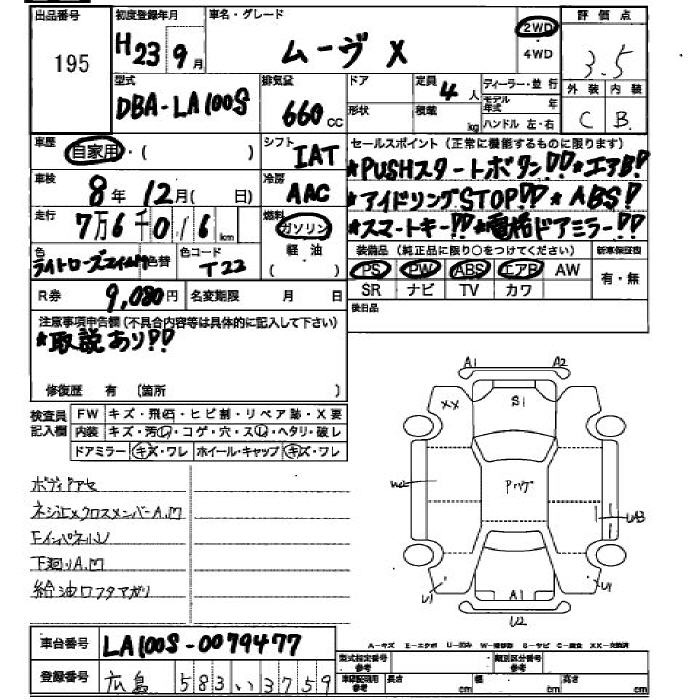 出品番号 初度登録年月 車名・グレード 評価点
195 H23 9月 ムーヴ X 2WD・4WD 3.5
型式 排気量 ドア 定員 4人 ディーラー・並行 外装 内装
DBA-LA100S 660cc 形状 積載 kg モデル年式 年 C B
ハンドル 左・右
車歴 自家用・( ) シフト IAT セールスポイント(正常に機能するものに限ります)
★PUSHスタートボタン!!★エアB!
車検 8年12月( 日) 冷房 AAC ★アイドリングSTOP!!★ABS!
走行 7万6千016km 燃料 ガソリン・軽油 ★スマートキー!!★電格ドアミラー!!
色 色替 色コード T22 装備品(純正品に限り○をつけてください) 新車保証書
PS PW ABS エアB AW 有・無
R券 9,080円 名変期限 月 日 SR ナビ TV カワ
注意事項申告欄(不具合内容等は具体的に記入して下さい) 後日品
★取説あり!!
修復歴 有(箇所 )
検査員記入欄 FW キズ・飛石・ヒビ割・リペア跡・X要
内装 キズ・汚レ・コゲ・穴・スレ・ヘタリ・破レ
ドアミラー キズ・ワレ ホイール・キャップ キズ・ワレ
A1 A2
XX S1
ボディアセ
ネジ止メクロスメンバーA.M
FインパネルU
下廻りA.M
給油口フタアガリ
U1 A1 U1
U2
車台番号 LA100S-0079477
A-キズ E-エクボ U-凹み W-補修跡 S-サビ C-腐食 XX-交換済
登録番号 広島 583 い 3759
型式指定番号 参考 類別区分番号 参考
車庫証明用 参考 長さ cm 幅 cm 高さ cm